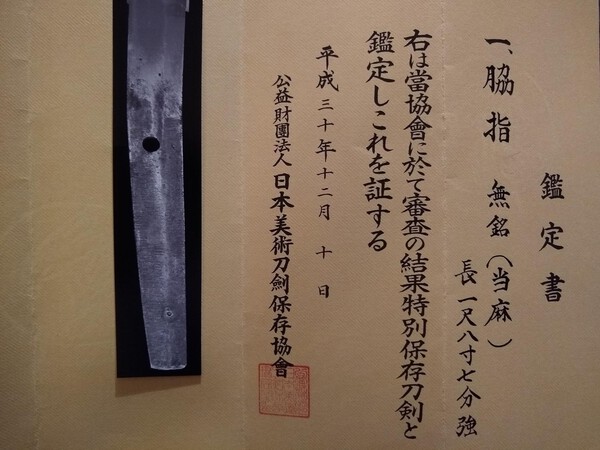 鑑定書
一、脇指 無銘(当麻)
長一尺八寸七分強
右は當協會に於て審査の結果特別保存刀剣と
鑑定しこれを証する
平成三十年十二月十日
公益財團法人日本美術刀劍保存協會